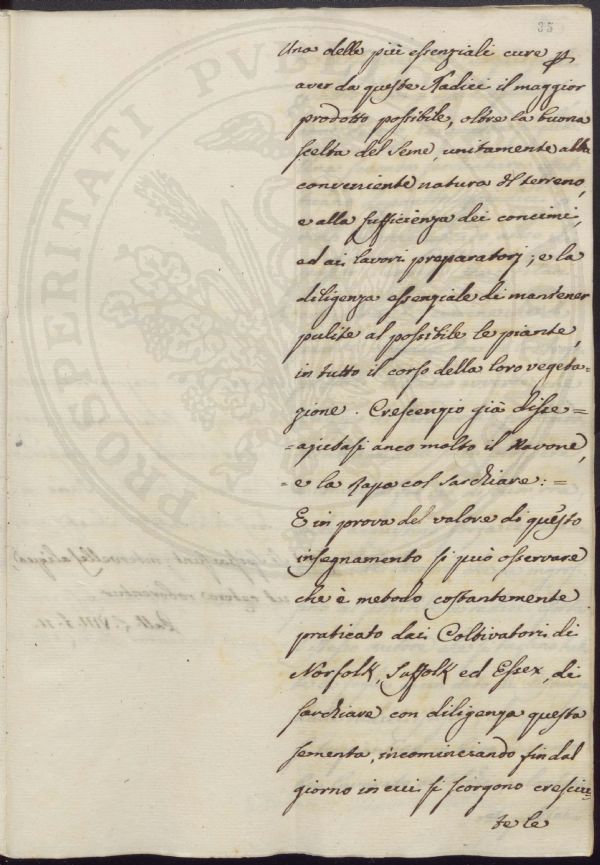 85
Una delle più essenziali cure p
aver da queste Radici il maggior
prodotto possibile, oltre la buona
scelta del seme, unitamente alla
conveniente natura del terreno,
e alla sufficienza dei concimi,
ed ai lavori preparatorj; e la
diligenza essenziale di mantener
pulite al possibile le piante,
in tutto il corso della loro vegeta-
zione. Crescenzio già disse =
= ajutasi anco molto il Navone,
= e la Rapa col sarchiare: =
E in prova del valore di questo
insegnamento si può osservare
che è metodo costantemente
praticato dai Coltivatori di
Norfolk, Suffolk ed Essex, di
sarchiare con diligenza questa
sementa, incominciando fin dal
giorno in cui si scorgono cresciu-
te le
PROSPERITATI PUBLICAE